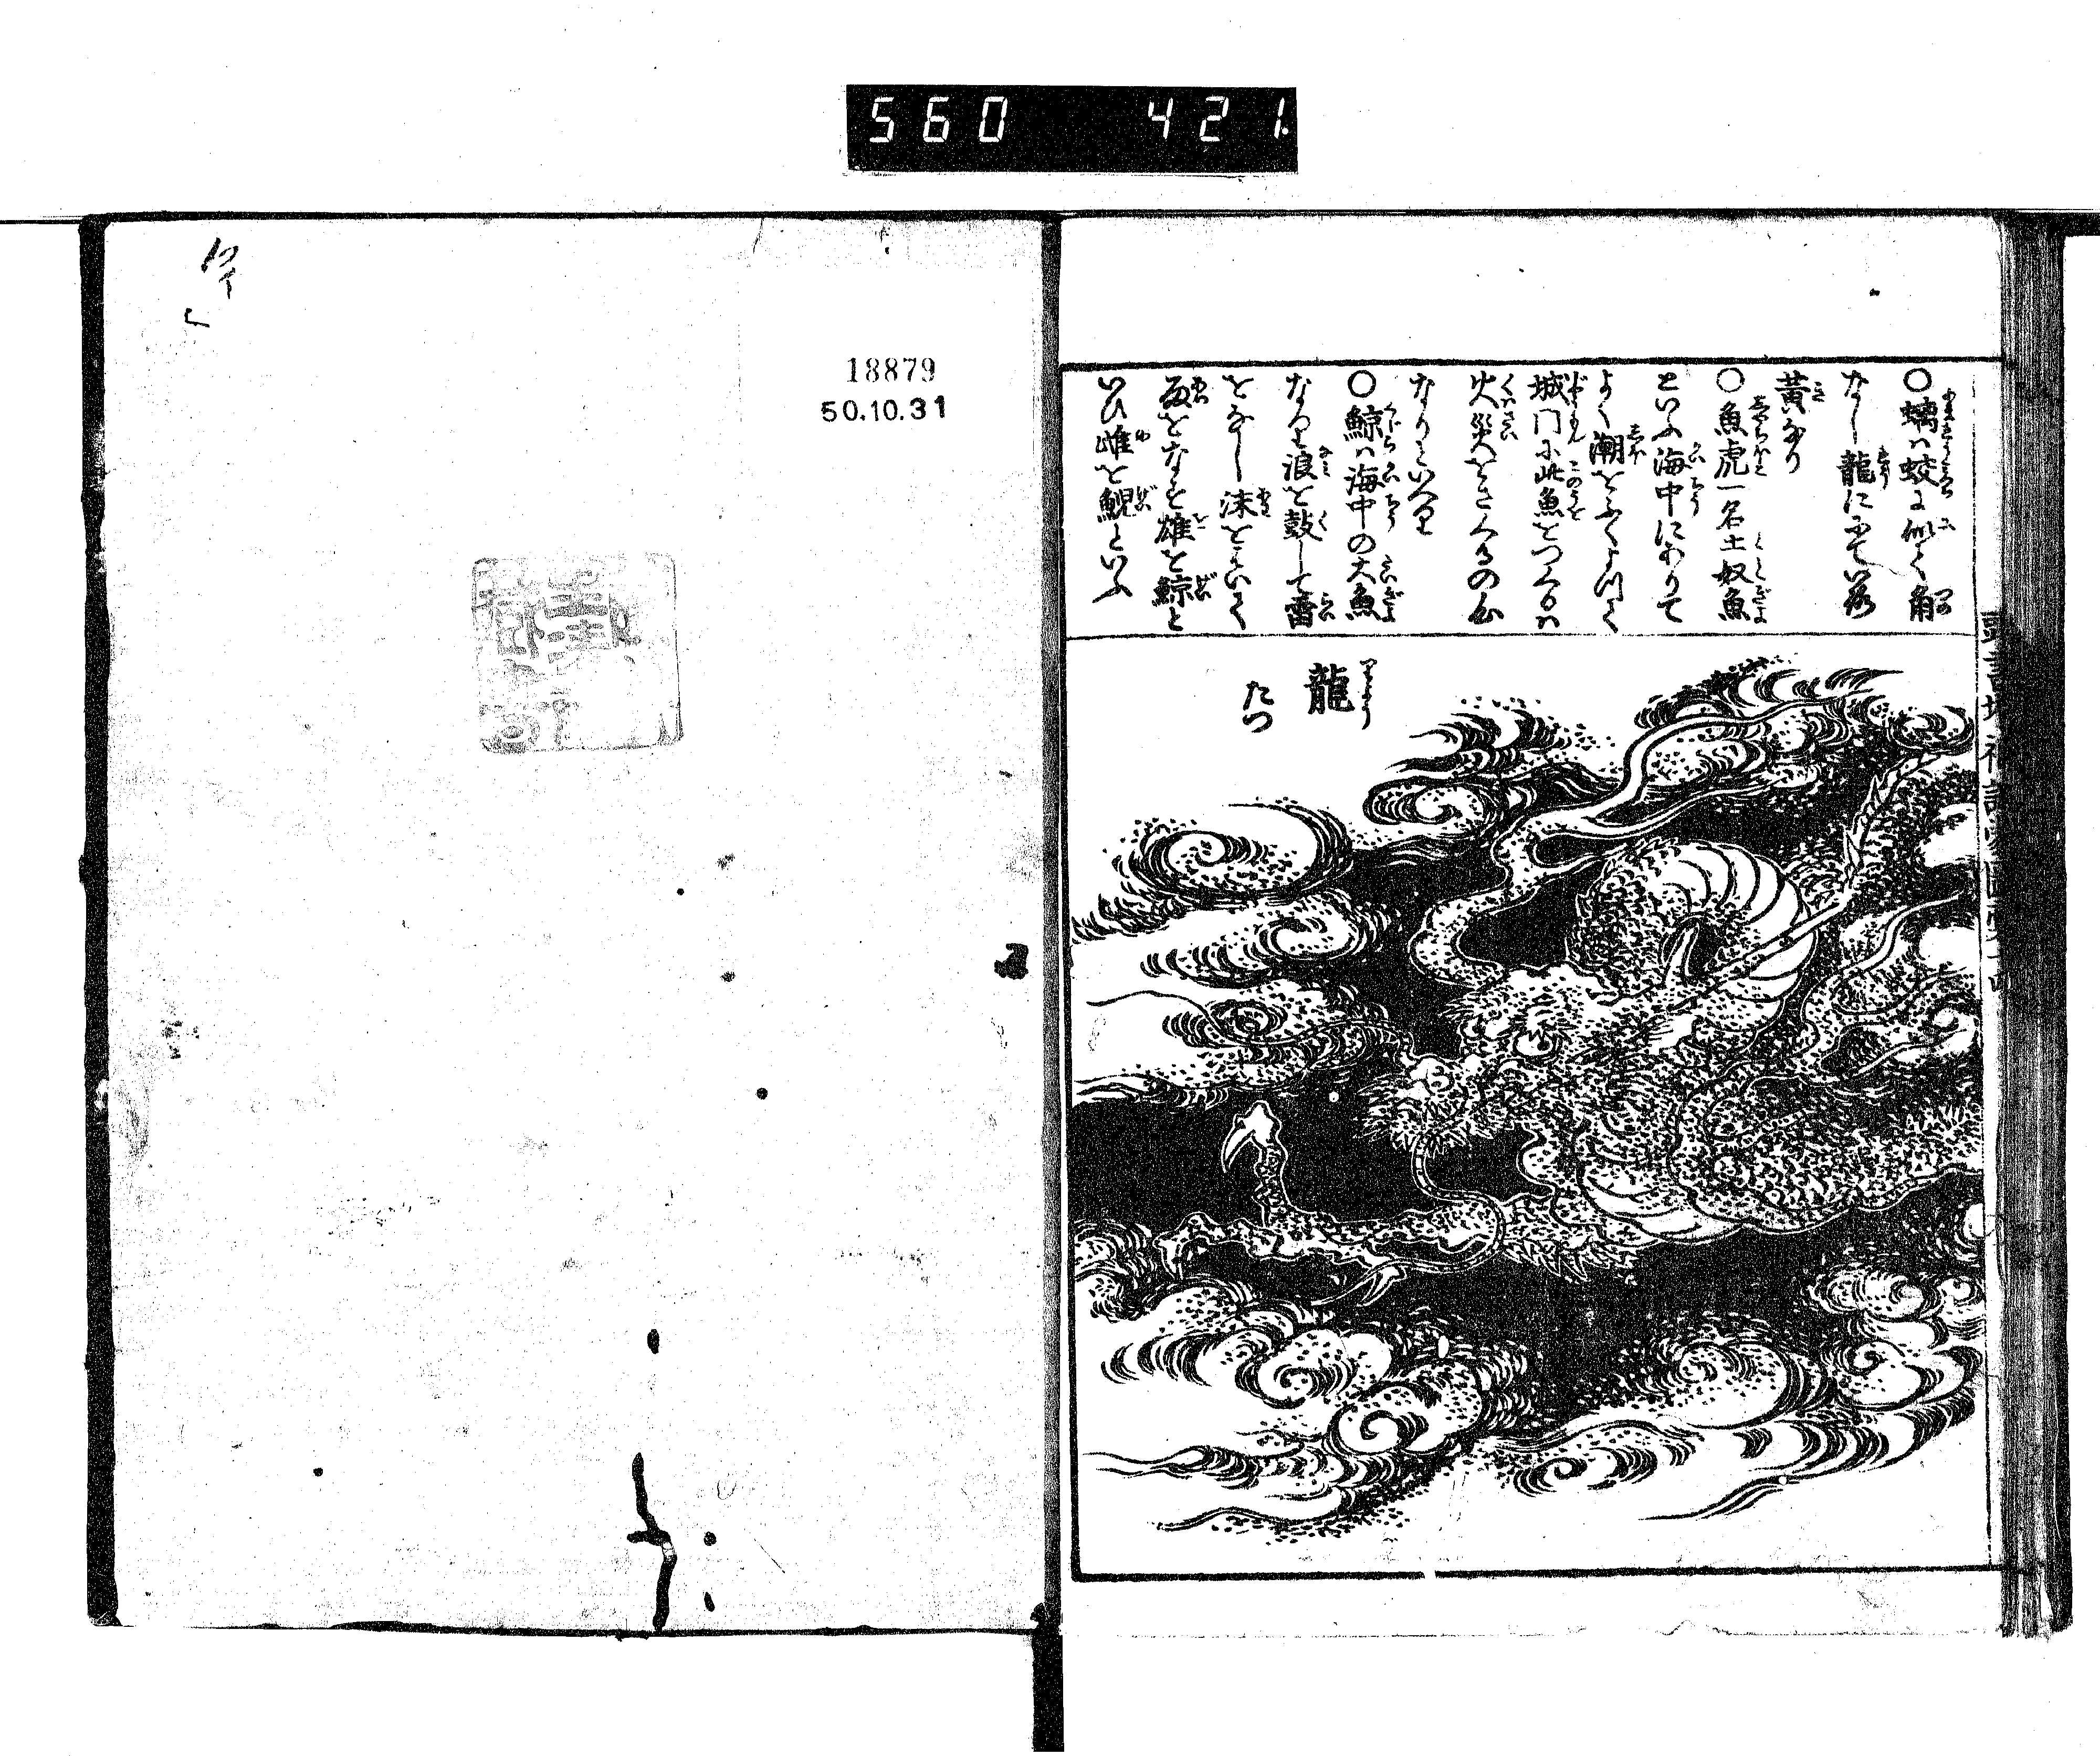 560 421
○螭は蛟に似て角
なし龍にゝて色
黄なり
○魚虎一名土奴魚
といふ海中にありて
よく潮をふくよつて
城門に此魚をつくるは
火災をさくるの心
なりといへり
○鯨は海中の大魚
なり浪を鼓して雷
をなし沫をはいて
雨をなす雄を鯨と
いひ雌を鯢といふ
龍
たつ
18879
50.10.31